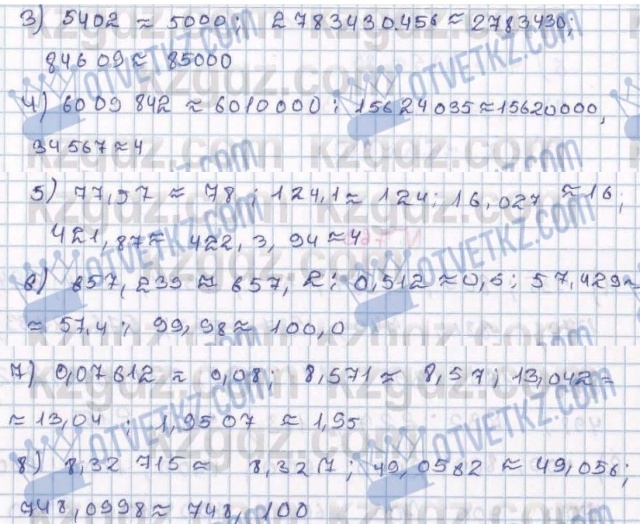 3) 5402 ≈ 5000; 2783430.456 ≈ 2783430;
84609 ≈ 85000
4) 6009 842 ≈ 6010000; 15624035 ≈ 15620000,
34567 ≈ 4
5) 77,97 ≈ 78; 124,1 ≈ 124; 16,027 ≈ 16;
421,87 ≈ 422, 3, 94 ≈ 4
6) 657,239 ≈ 657,2; 0,512 ≈ 0,5; 57,429 ≈
≈ 57,4; 99,98 ≈ 100,0
7) 0,07612 ≈ 0,08; 8,571 ≈ 8,57; 13,042 =
≈ 13,04; 1,9507 ≈ 1,95
8) 8,32 715 ≈ 8,327; 49,0562 ≈ 49,056;
748,0998 ≈ 748,100
kzgdz.com
OTVETKZ.COM